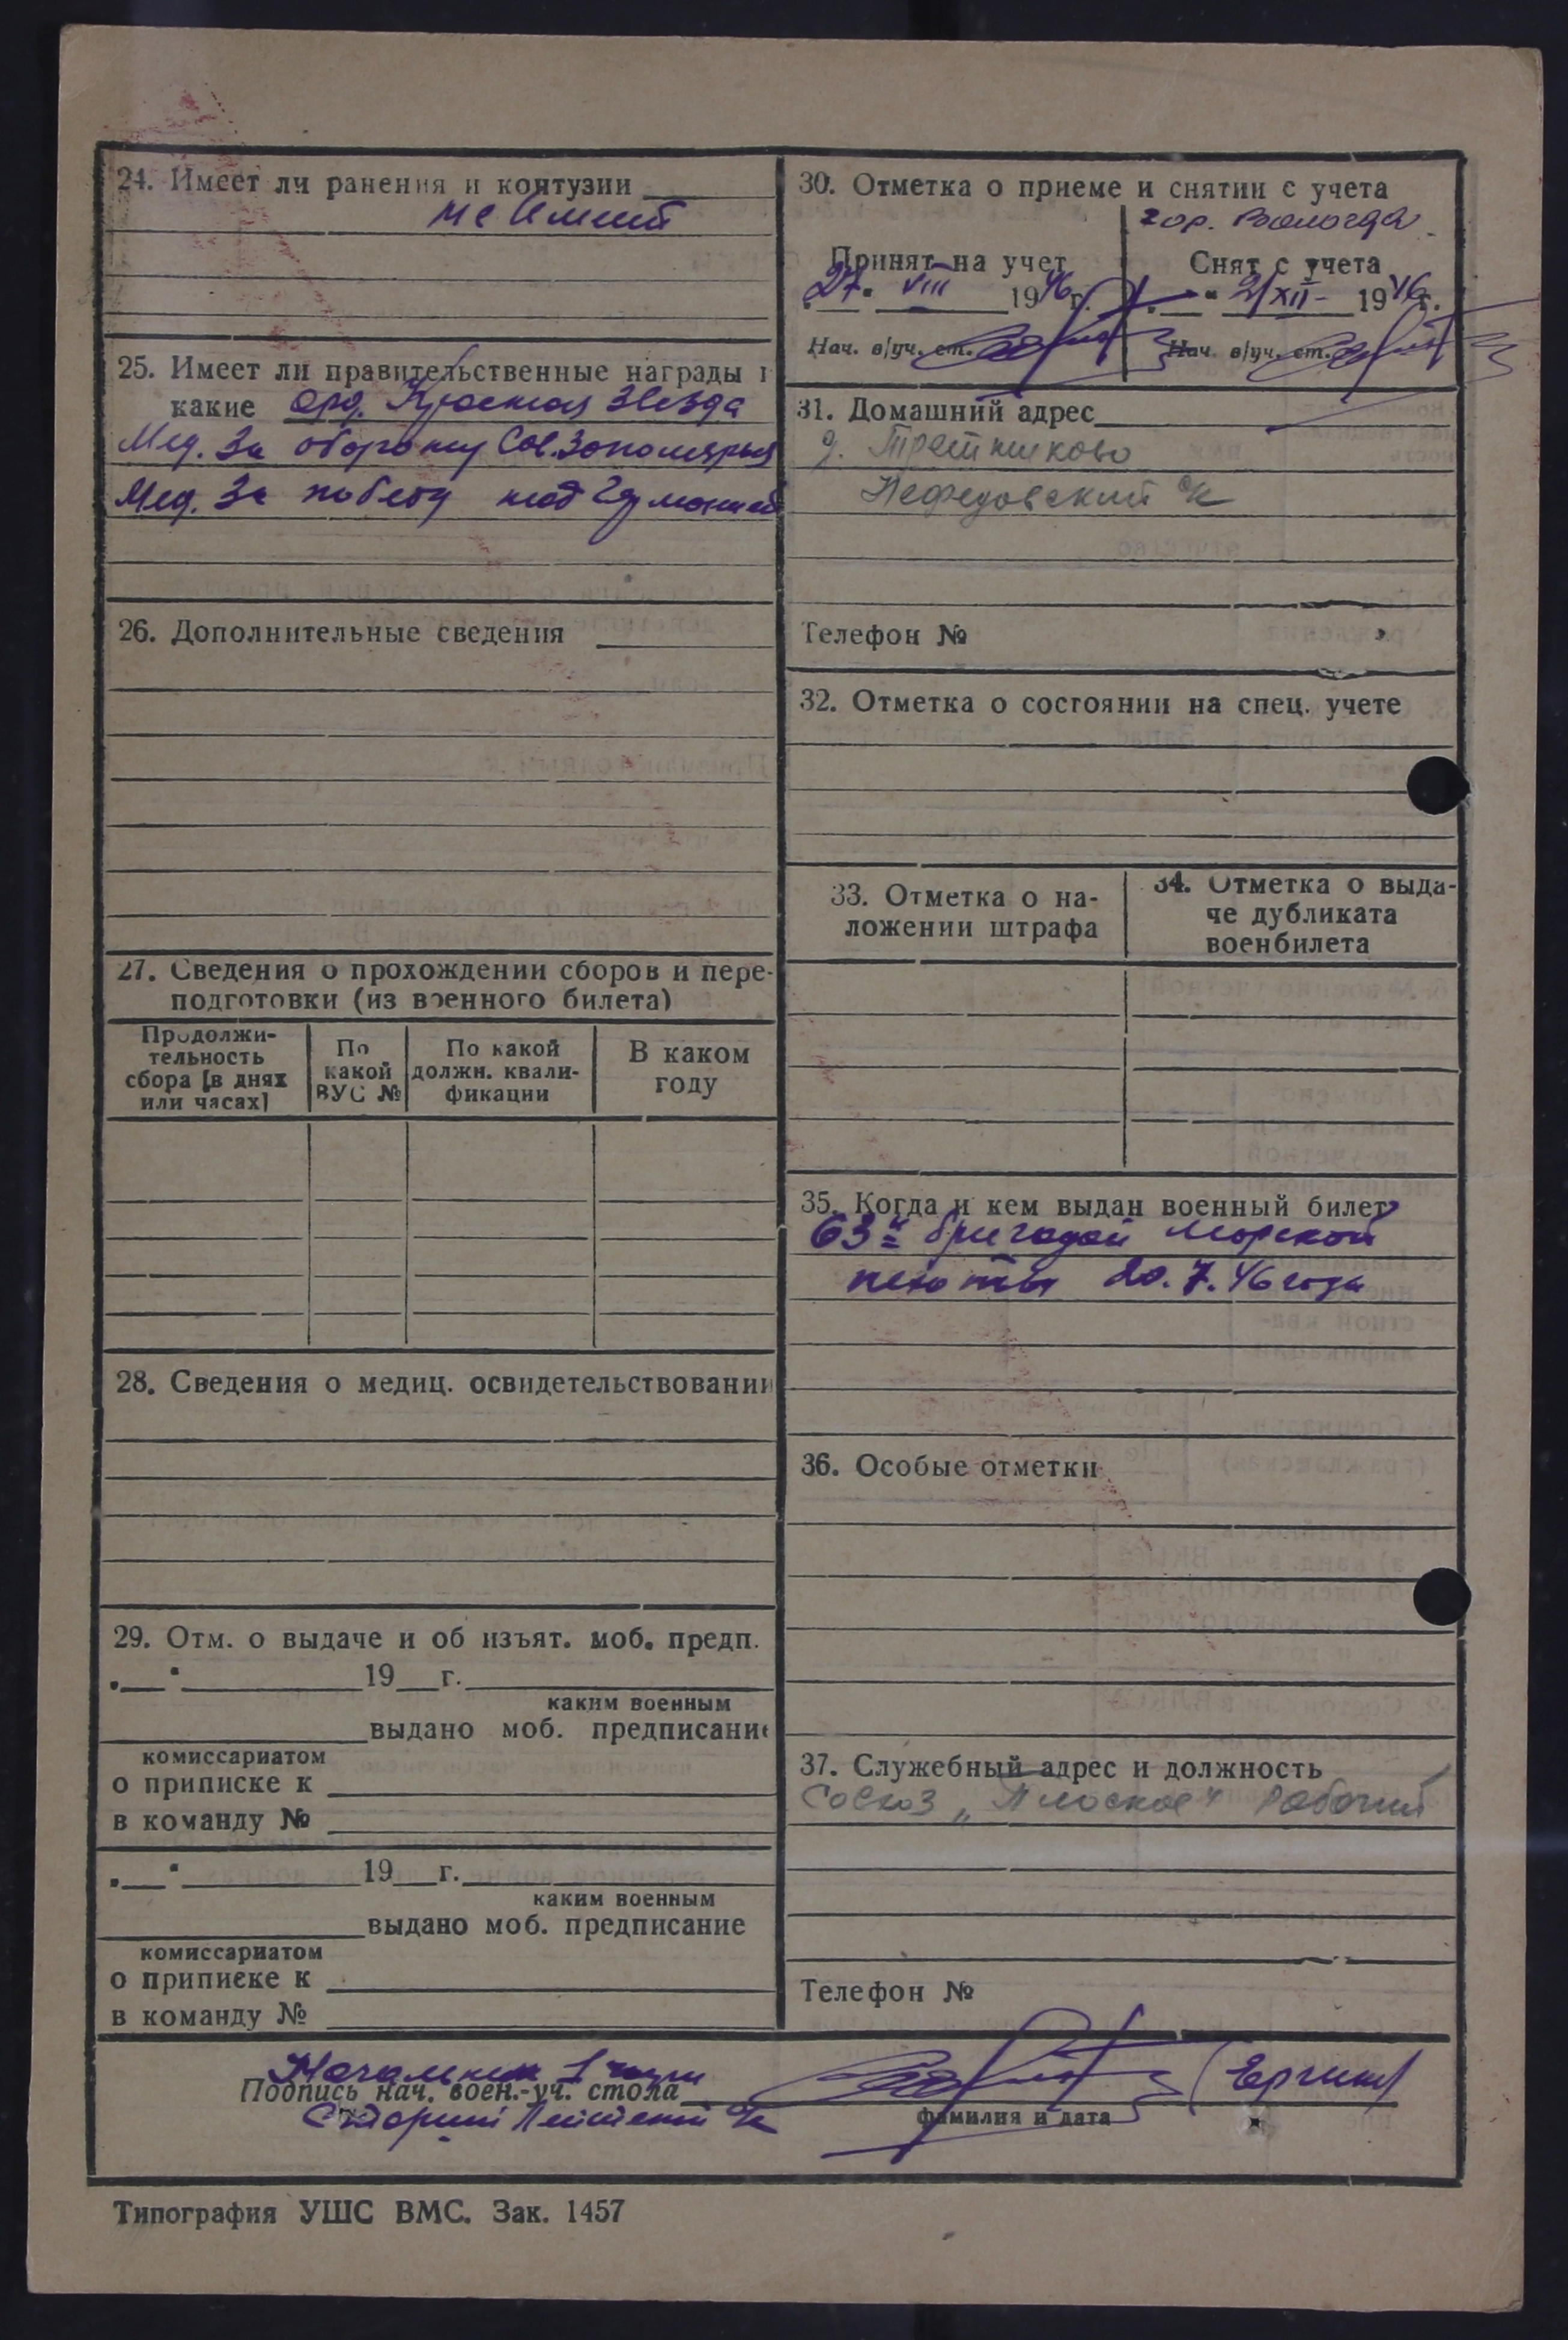 24. Имеет ли ранения и контузии
не имеет
25. Имеет ли правительственные награды и
какие Орд. Красная Звезда
Мед. За оборону Сов. Заполярья
Мед. За победу над Германией
26. Дополнительные сведения
27. Сведения о прохождении сборов и пере-
подготовки (из военного билета)
Продолжи-
тельность
сбора [в днях
или часах]
По
какой
ВУС №
По какой
должн. квали-
фикации
В каком
году
28. Сведения о медиц. освидетельствовании
29. Отм. о выдаче и об изъят. моб. предп.
„ “ 19 г.
каким военным
выдано моб. предписание
комиссариатом
о приписке к
в команду №
„ “ 19 г.
каким военным
выдано моб. предписание
комиссариатом
о приписке к
в команду №
30. Отметка о приеме и снятии с учета
гор. Вологда
Принят на учет
27 VIII 1946 г.
Нач. в/уч. ст.
Снят с учета
21 XII 1946 г.
Нач. в/уч. ст.
31. Домашний адрес
Нефедовский с/с
Телефон №
32. Отметка о состоянии на спец. учете
33. Отметка о на-
ложении штрафа
34. Отметка о выда-
че дубликата
военбилета
35. Когда и кем выдан военный билет
63й бригадой Морской
пехоты 20.7.46 года
36. Особые отметки
37. Служебный адрес и должность
Совхоз „Плоское“ Рабочий
Телефон №
Начальник 1 части
Подпись нач. воен.-уч. стола
Старший Лейтенант
(Ергин)
фамилия и дата
Типография УШС ВМС. Зак. 1457